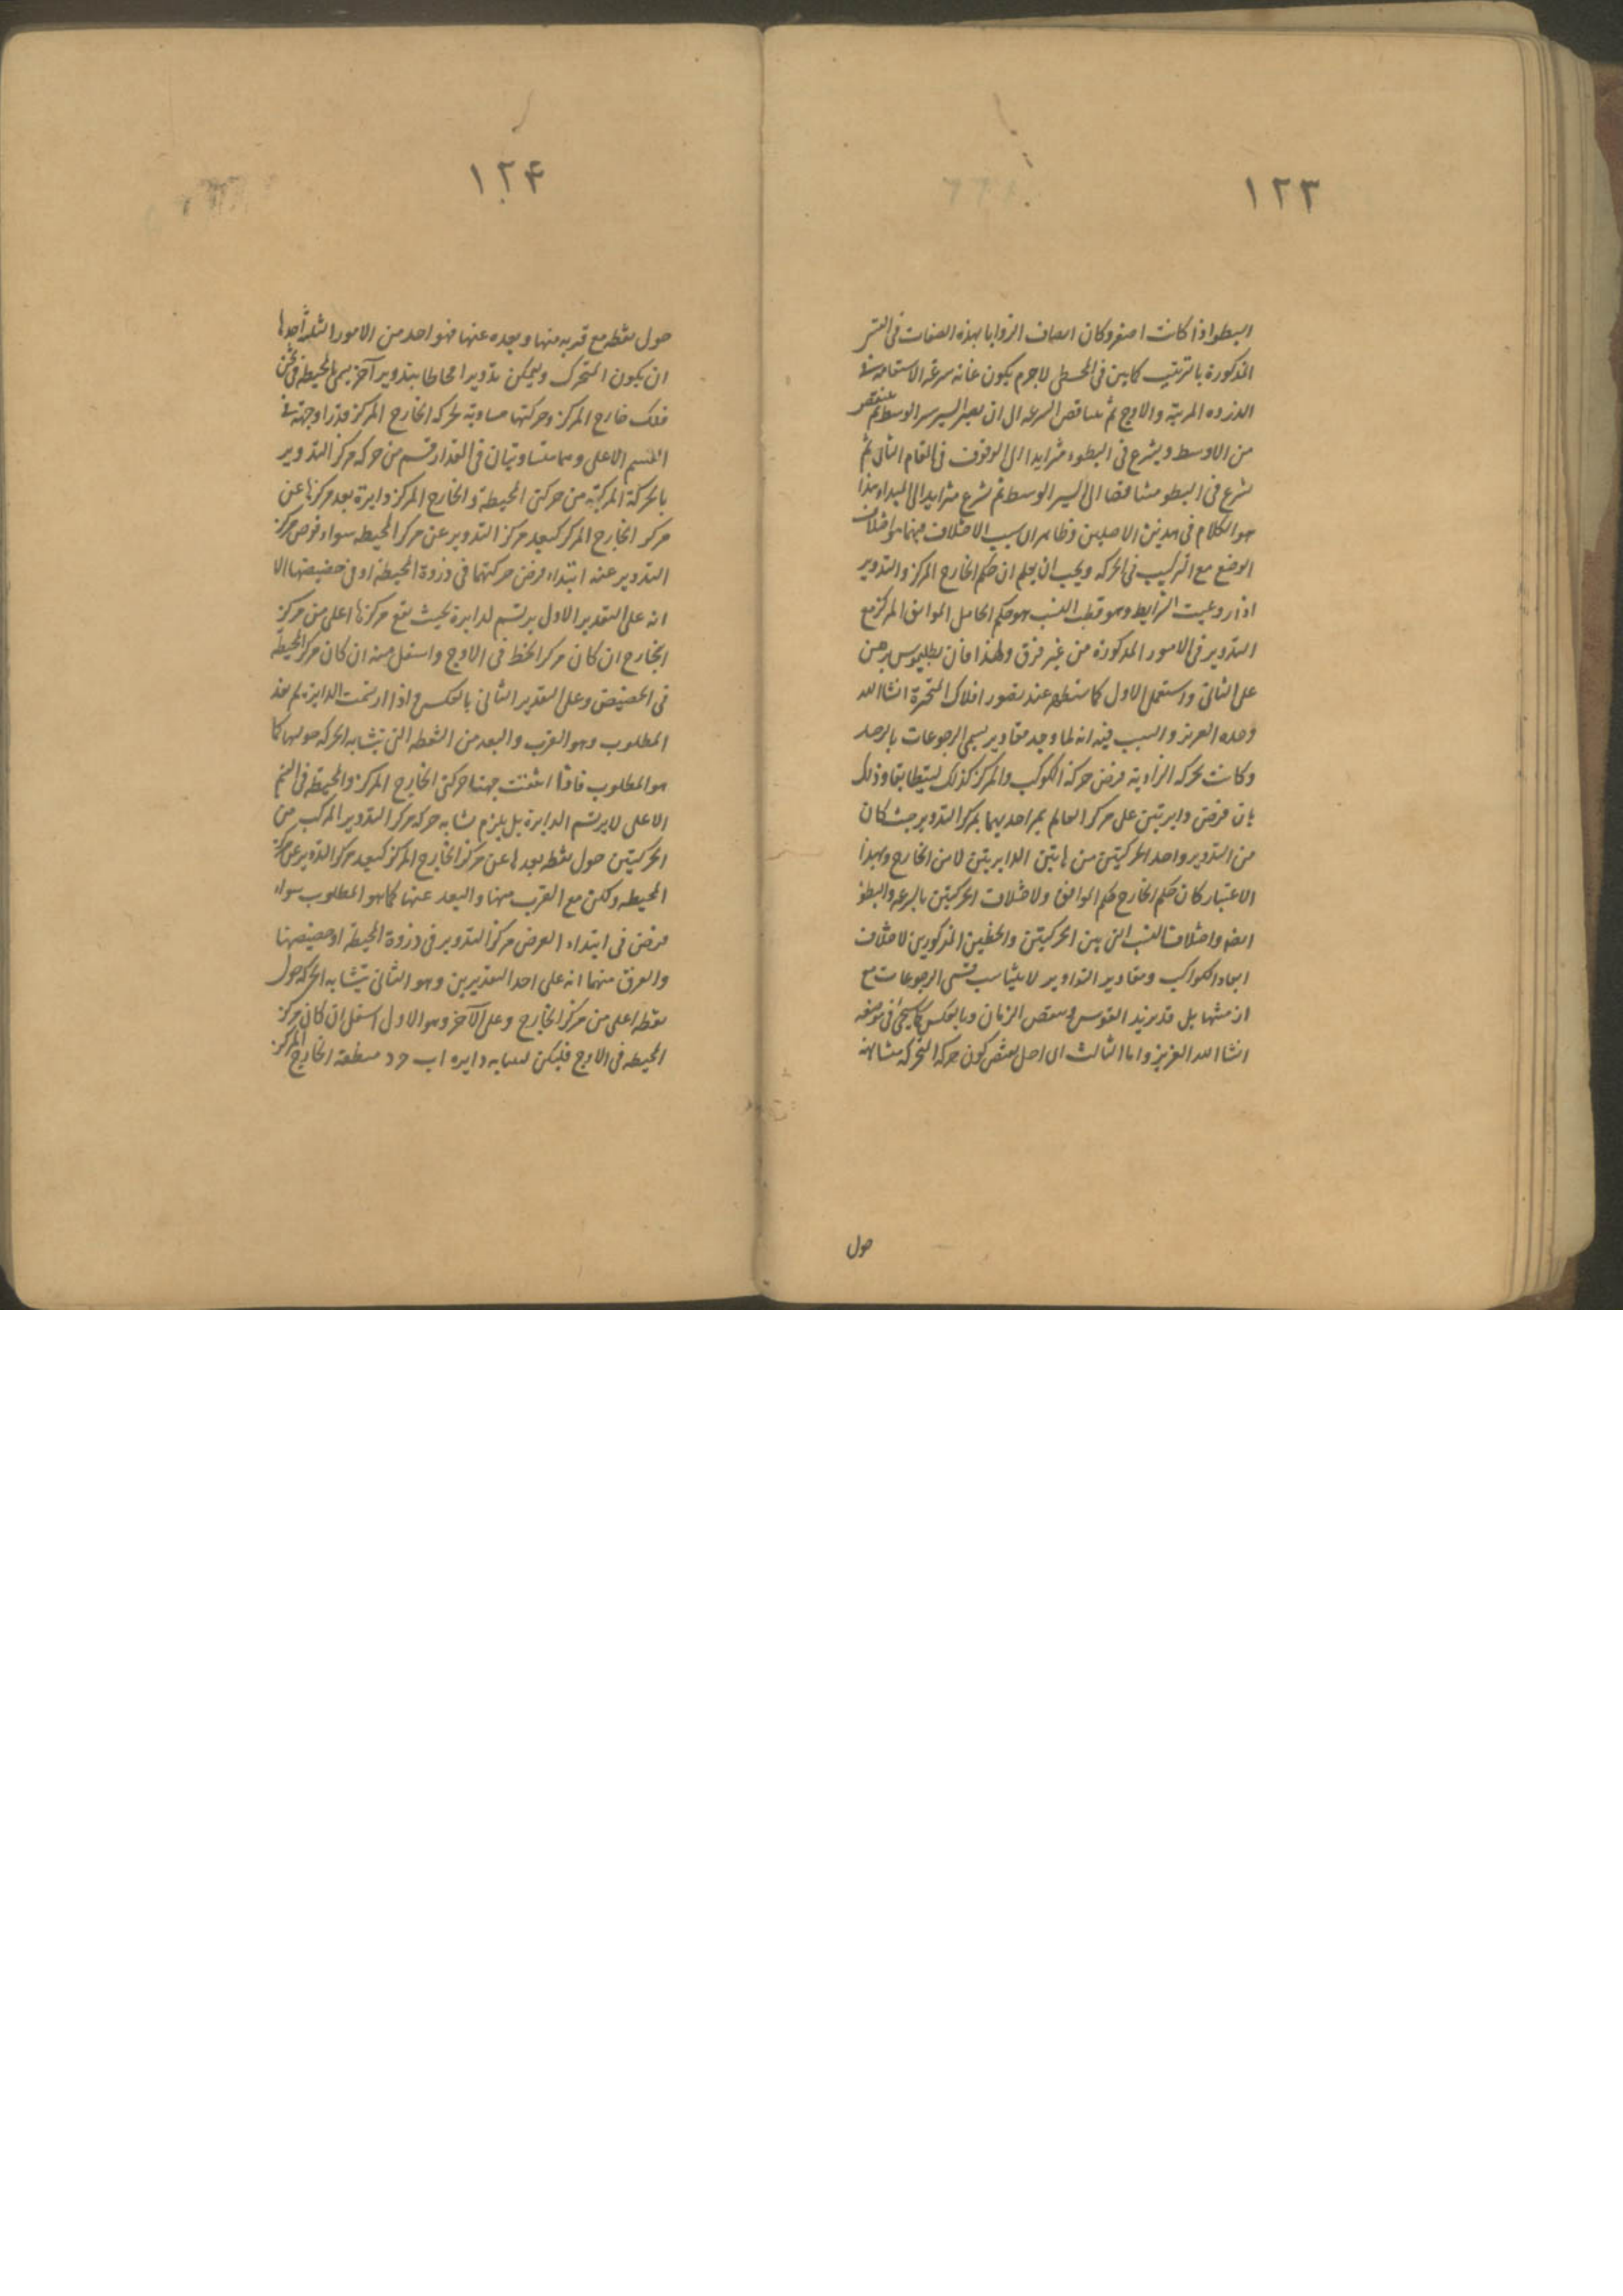 ١٢٣
البطو اذا كانت اصغر وكان انصاف الزوايا بهذه الصفات فى القسر
المذكورة بالترتيب كما بين فى المجسطى لاجرم يكون غاية سرعة الاستقامة فى
الذروه المرئية والاوج ثم يتناقص السرعه الى ان يصير السير سير الوسط ثم ينتقص
من الاوسط ويشرع فى البطوء متزايدا الى الوقوف فى المقام الثانى ثم
يشرع فى البطو متناقصا الى السير الوسط ثم يشرع متزايدا الى المبداء هذا
هو الكلام فى هذين الاصلين وظاهر ان سبب الاختلاف فيهما هو اختلاف
الوضع مع التركيب فى الحركه ويجب ان يعلم ان حكم الخارج المركز والتدوير
اذا روعيت الشرايط وهو قطب النسب هو حكم الحامل الموافق المركز مع
التدوير فى الامور المذكورة من غير فرق ولهذا فان بطليموس برهن
على الثانى واستعمل الاول كما ستطلع عند تصور افلاك المتحيرة انشا الله
وحده العزيز والسبب فيه انه لما وجد مقادير قسمى الرجوعات بالرصد
وكانت بحركه الزاوية فرض حركة الكوكب والمركز كذلك ليتطابقا وذلك
بان فرض دايرتين على مركز العالم يمر احديهما بمركز التدوير حيث كان
من التدوير واحد الحركتين من هاتين الدايرتين لا من الخارج وبهذا
الاعتبار كان حكم الخارج حكم الموافق ولاختلاف الحركتين بالسرعه والبطؤ
ايضا واختلاف النسب التى بين الحركتين والخطين المذكورين لاختلاف
ابعاد الكواكب ومقادير التداوير لا يتناسب قسمى الرجوعات مع
ازمنتها بل قد يزيد القوس وينقص الزمان وبالعكس كما سيجئ فى موضعه
انشا الله العزيز واما الثالث اى اصل يقتضى كون حركة المتحرك متشابهة
حول
١٢۴
حول نقطه مع قربه منها وبعده عنها فهو احد من الامور الثلثة احدها
ان يكون المتحرك وليكن تدويرا محاطا بتدوير آخر يسمى المحيطه فى ثخن
فلك خارج المركز وحركتها مساوية لحركة الخارج المركز قدرا وجهة فى
القسم الاعلى وهما متساويتان فى المقدار قسم من حركه مركز التدوير
بالحركة المركبة من حركتى المحيطة والخارج المركز دايرة بعد مركزها عن
مركز الخارج المركز كبعد مركز التدوير عن مركز المحيطه سواء فرض مركز
التدوير عند ابتداء فرض حركتهما فى ذروة المحيطة او فى حضيضها الا
انه على التقدير الاول يرتسم الدايرة بحيث يقع مركزها اعلى من مركز
الخارج ان كان مركز المحيط فى الاوج واسفل منه ان كان مركز المحيطة
فى الحضيض وعلى التقدير الثانى بالعكس واذا ارتسمت الدايرة لم يفد
المطلوب وهو القرب والبعد من النقطه التى يتشابه الحركه حولها كما
هو المطلوب فاذا اتفقت جهتا حركتى الخارج المركز والمحيطه فى القسم
الاعلى لا يرتسم الدايرة بل يلزم تشابه حركه مركز التدوير المركب من
الحركتين حول نقطه بعدها عن مركز الخارج المركز كبعد مركز التدوير عن مركز
المحيطه ولكن مع القرب منها والبعد عنها كما هو المطلوب سواء
فرض فى ابتداء الفرض مركز التدوير فى ذروة المحيطة او حضيضها
والفرق منهما انه على احد التقديرين وهو الثانى يتشابه الحركه حول
نقطه اعلى من مركز الخارج وعلى الآخر وهو الاول اسفل ان كان مركز
المحيطه فى الاوج فليكن لبيانه دايره ا ب ح د منطقة الخارج المركز